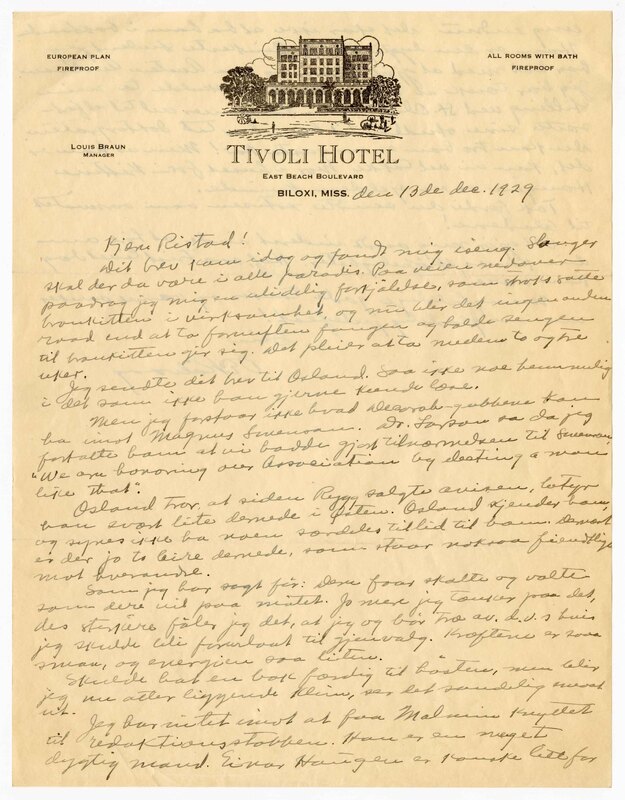 EUROPEAN PLAN
FIREPROOF
ALL ROOMS WITH BATH
FIREPROOF
LOUIS BRAUN
MANAGER
TIVOLI HOTEL
EAST BEACH BOULEVARD
BILOXI, MISS. den 13de dec. 1929
Kjære Ristad!
Dit brev kom idag og fandt mig iseng. Senger
skal der da være i alle paradis. Paa veien nedover
paadrog jeg mig en ulidelig forkjølelse, som straks satte
bronkitten i virksomhet, og nu blir det ingen anden
raad end at ta fornuften fangen og holde sengen
til bronkitten gir sig. Det pleier at ta mindst to og tre
uker.
Jeg sendte dit brev til Osland. Saa ikke noe hemmelig
i det som ikke han gjerne kunde læse.
Men jeg forstaar ikke hvad Decorah-gubbene kan
ha imot Magnus Swenson. Dr. Larson sa da jeg
fortalte ham at vi hadde gjort tilnærmelsen til Swenson
"We are honoring our Association by electing a man
like that".
Osland tror, at siden Rygg salgte avisen, betyr
han svært lite dernede i Østen. Osland kjender ham,
og synes ikke ha noen særdeles tillid til ham. Dessuten
er der jo to leire dernede, som staar noksaa fiendtlige
mot hverandre.
Som jeg har sagt før: Dere faar skalte og valte
som dere vil paa møtet. Jo mer jeg tænker paa det,
des sterkere føler jeg det, at jeg og bør træ av, d.v.s hvis
jeg skulde bli foreslaat til gjenvalg. Kræftene er saa
smaa, og energien saa liten.
Skulde hat en bok færdig til høsten, men blir
jeg nu atter liggende klein, ser det sandelig mørkt
ut.
Jeg har intet imot at faa Malmin knyttet
til redaktionsstabben. Han er en meget
dygtig mand. Einar Haugen er kanske litt for